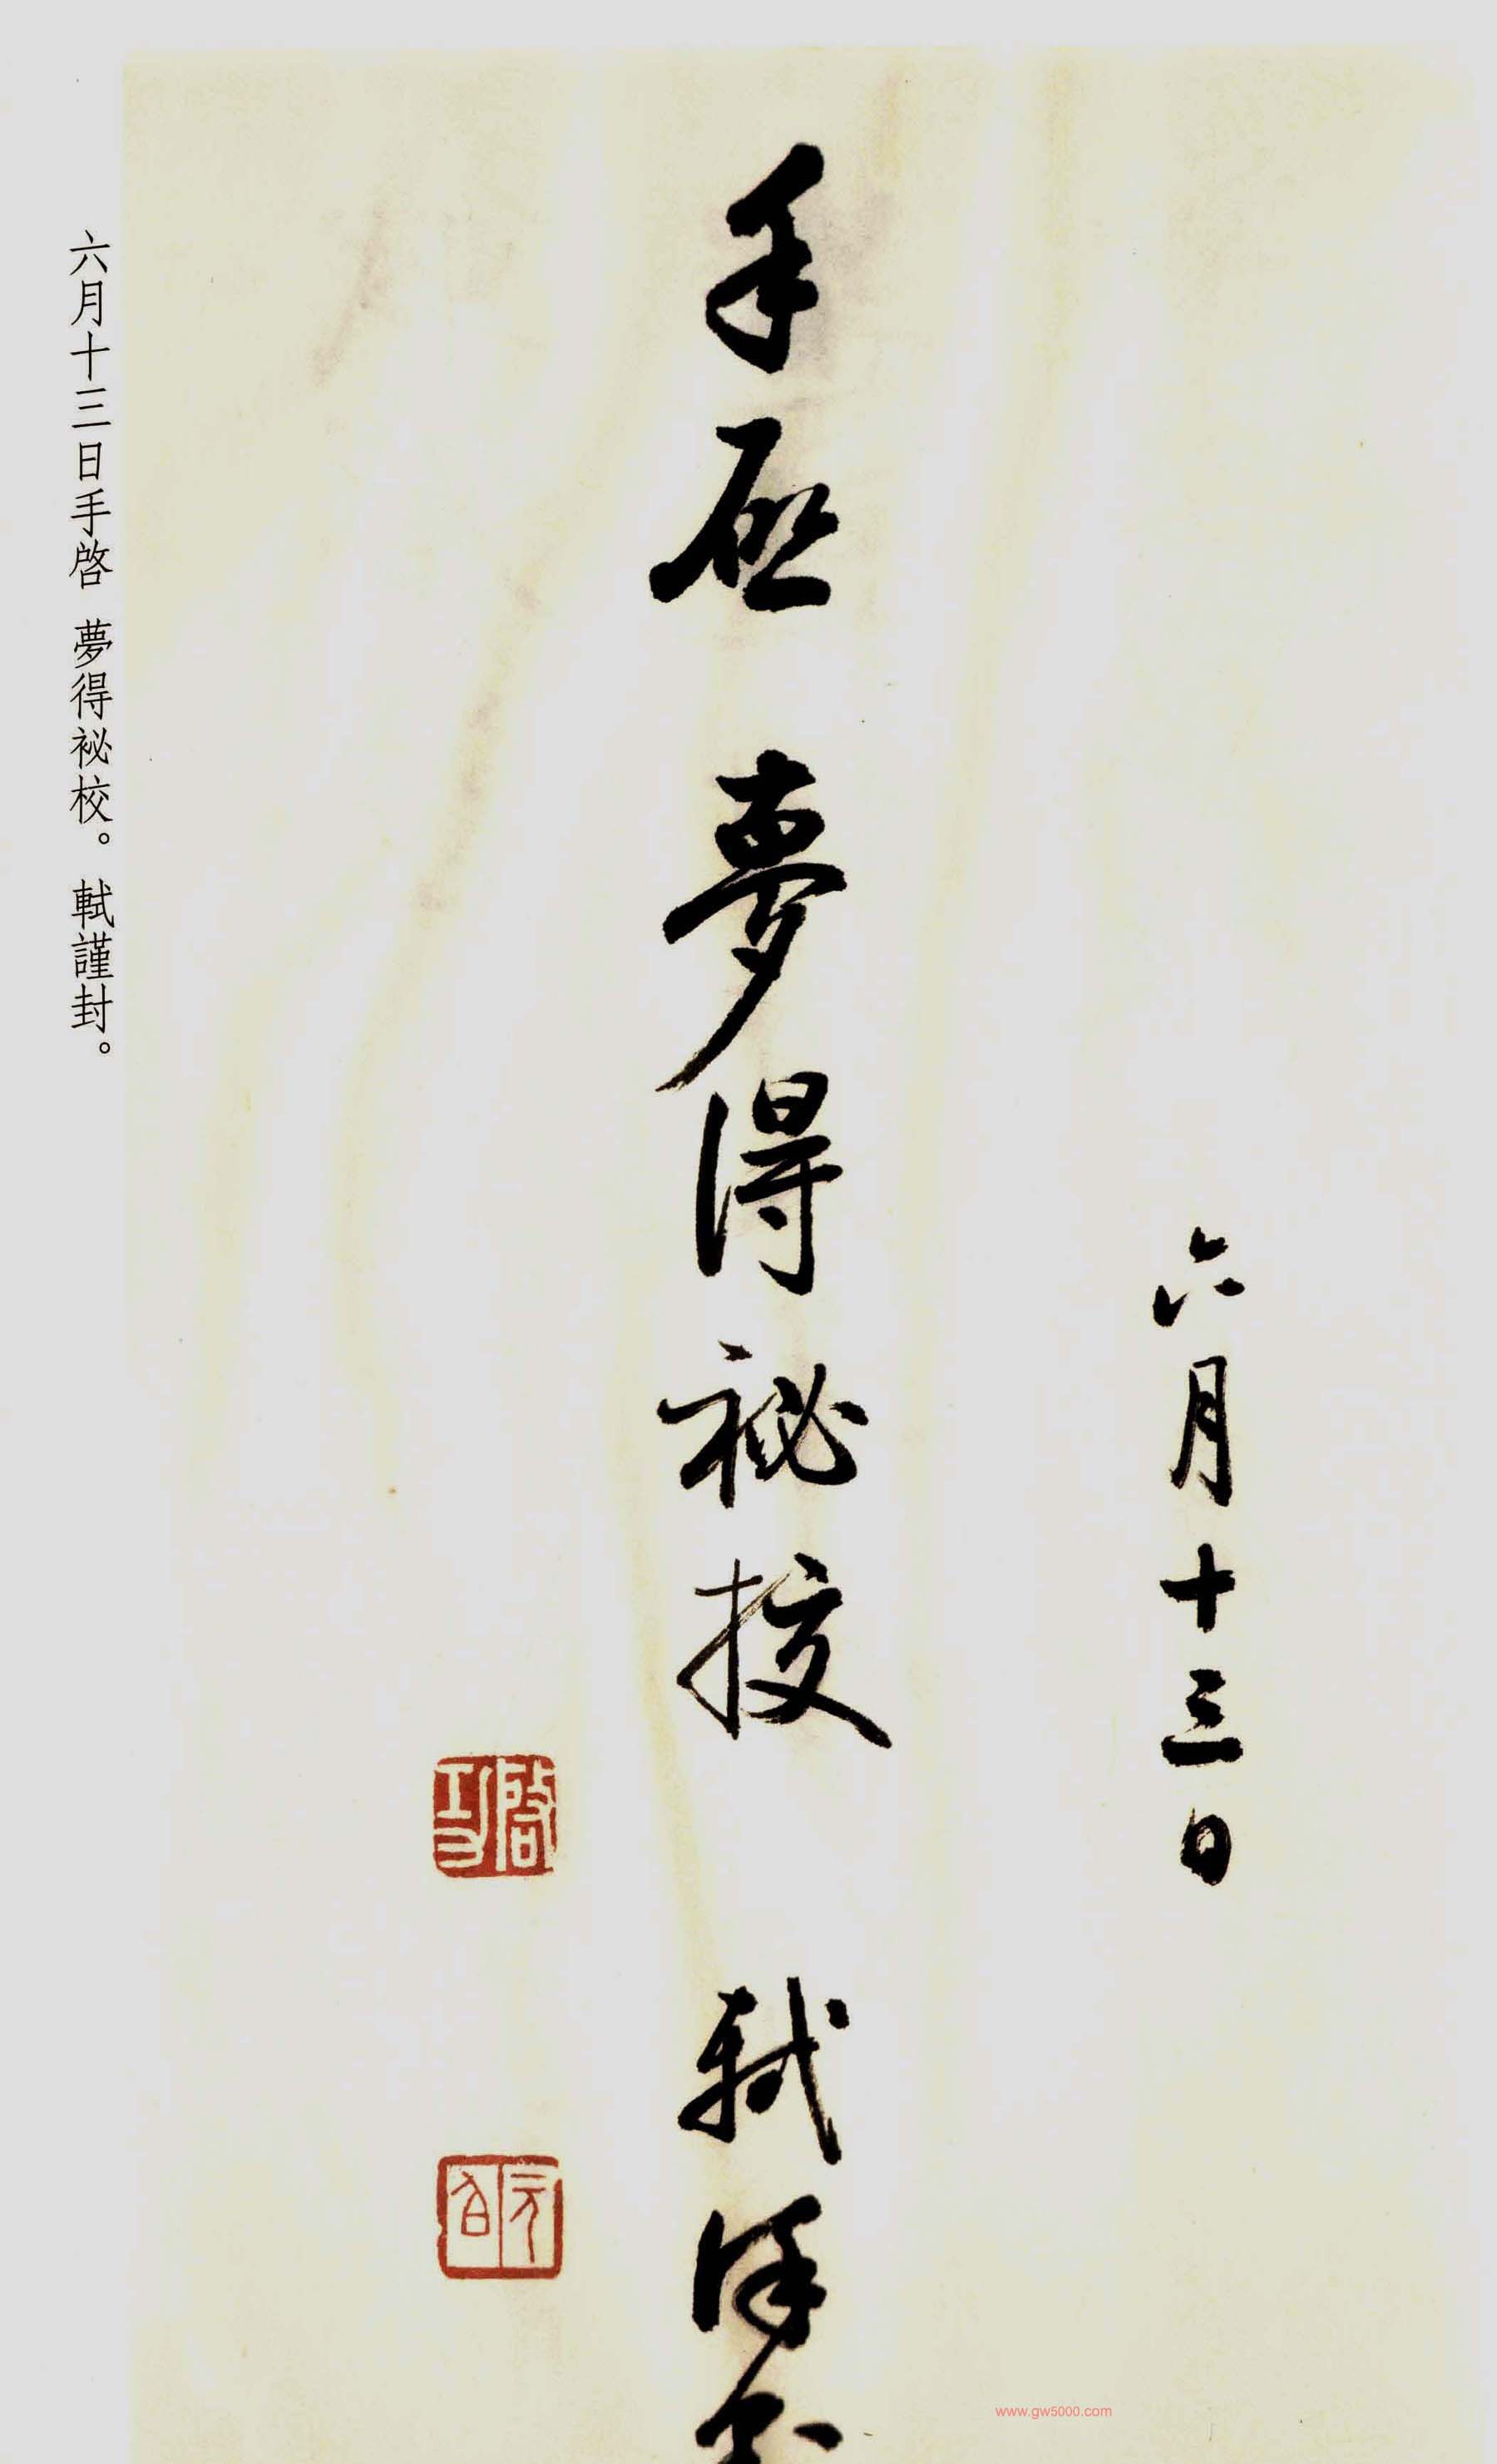 六月十三日
手啓 夢得祕挍 軾謹封
啓功
元白
六月十三日手啓 夢得祕校。 軾謹封。
www.gw5000.com